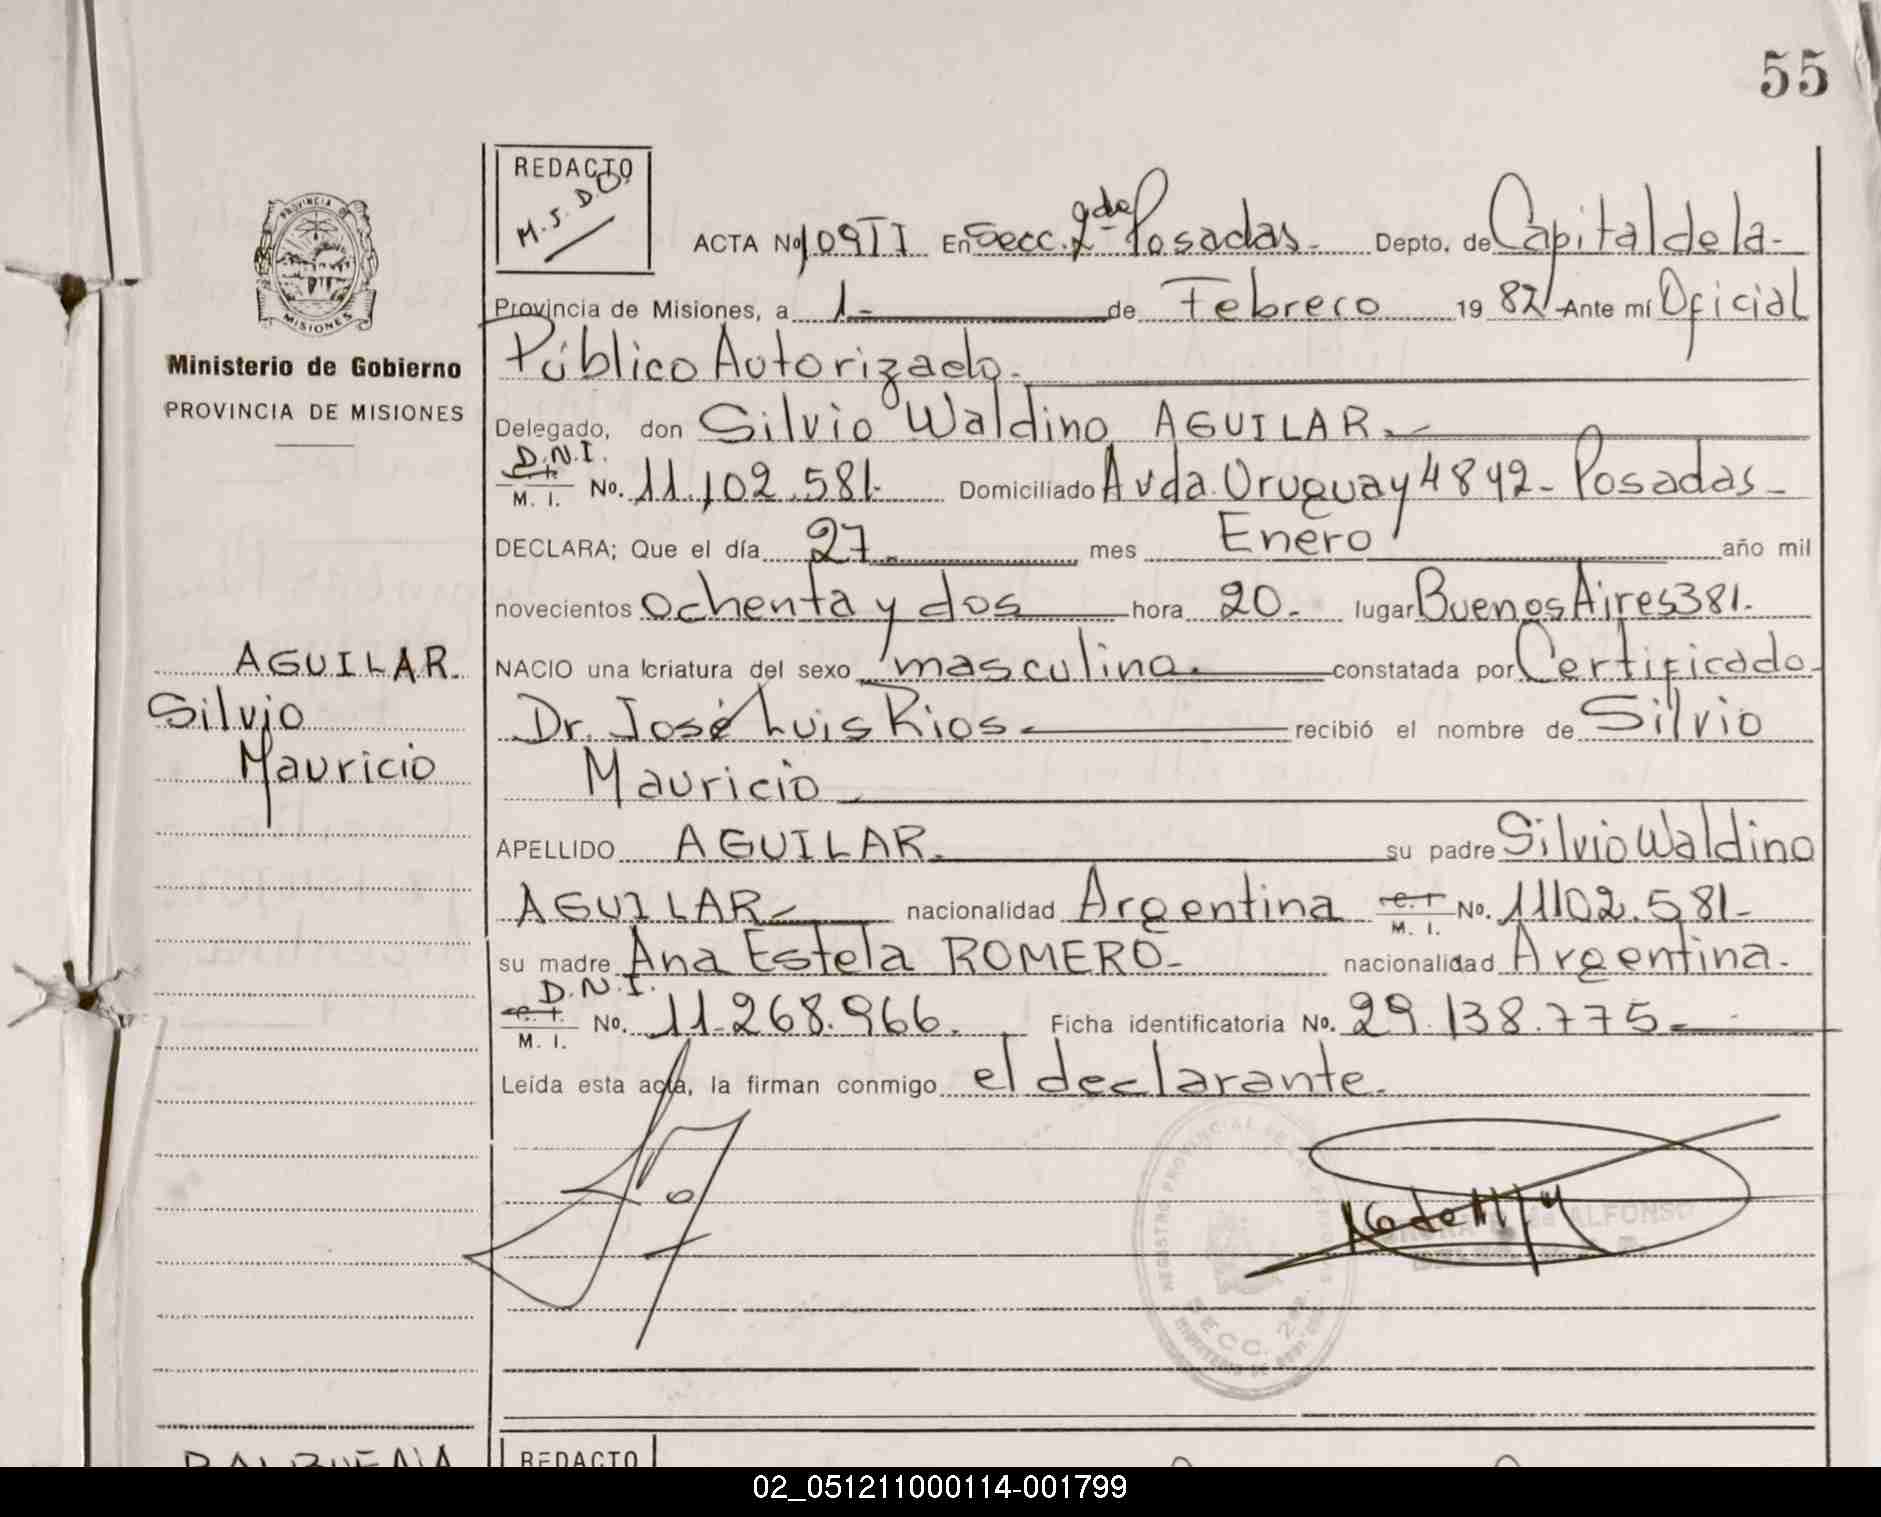 55
REDACTO
M.S.D.O.
PROVINCIA DE
MISIONES
Ministerio de Gobierno
PROVINCIA DE MISIONES
ACTA No 109 II En Secc. 2da Posadas. Depto. de Capital de la-
Provincia de Misiones, a 1- de Febrero 1982 Ante mí Oficial
Público Autorizado.
Delegado, don Silvio Waldino AGUILAR.
D.N.I.
M. I. No. 11.102.581. Domiciliado Avda. Uruguay 4842- Posadas-
DECLARA; Que el día 27. mes Enero año mil
novecientos ochenta y dos hora 20. lugar Buenos Aires 381.
AGUILAR.
Silvio
Mauricio
NACIO una criatura del sexo masculino. constatada por Certificado.
Dr. José Luis Rios. recibió el nombre de Silvio
Mauricio
APELLIDO AGUILAR. su padre Silvio Waldino
AGUILAR- nacionalidad Argentina C. I. M. I. No. 11102.581-
su madre Ana Estela ROMERO- nacionalidad Argentina.
D.N.I.
C. I. M. I. No. 11.268.966. Ficha identificatoria No. 29.138.775-
Leída esta acta, la firman conmigo el declarante.
REGISTRO PROVINCIAL DE LAS PERSONAS
SECC. 2da.
de ALFONSO
BALBUENA
REDACTO
02_051211000114-001799